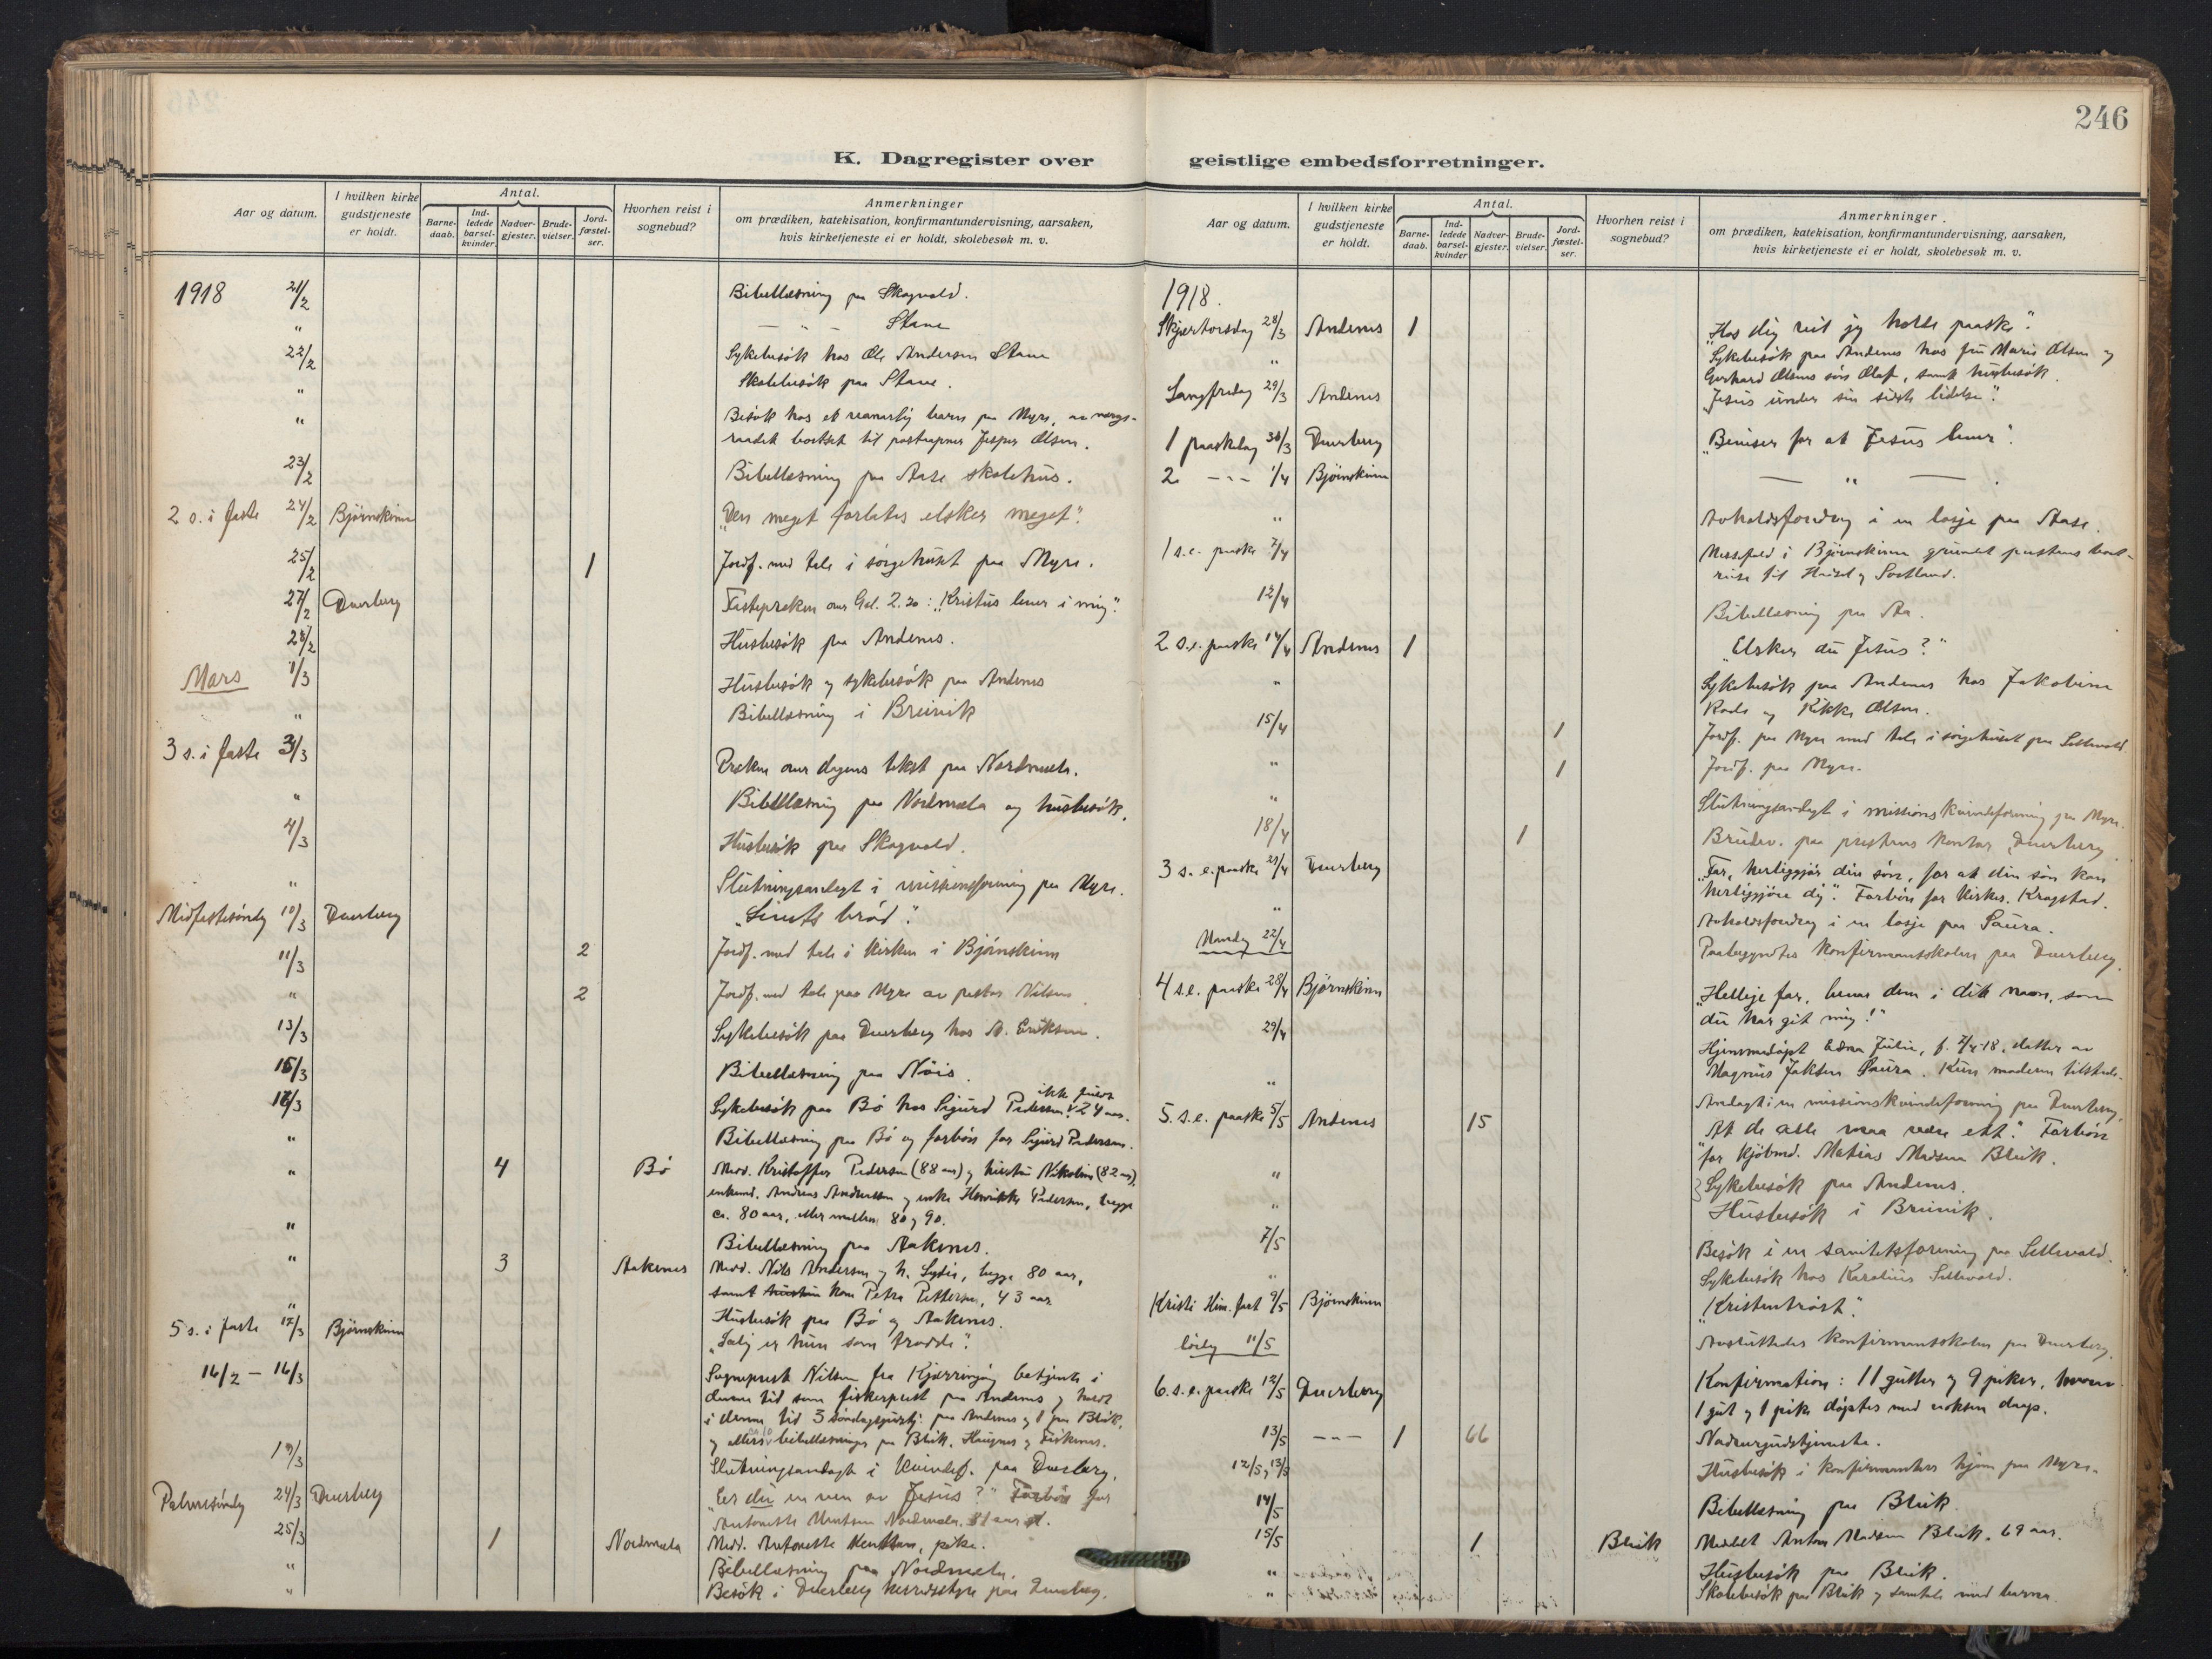 246
K. Dagregister over
geistlige embedsforretninger.
Aar og datum.
I hvilken kirke gudstjeneste er holdt.
Antal.
Barne-daab.
Ind-ledede barsel-kvinder.
Nadver-gjester.
Brude-vielser.
Jord-fæstel-ser.
Hvorhen reist i sognebud?
Anmerkninger
om prædiken, katekisation, konfirmantundervisning, aarsaken,
hvis kirketjeneste ei er holdt, skolebesøk m. v.
1918 21/2 Bibellæsning paa Skogvold.
" — " — Stave
22/2 Sykebesøk hos Ole Andersen Stave
" Skolebesøk paa Stave.
" Besøk hos et vanartig barn paa Myre, av værge-
raadet bortsat til postaapner Jesper Olsen.
23/2 Bibellæsning paa Aase skolehus.
2 s. i faste 24/2 Bjørnskinn „Den meget forlates elsker meget".
25/2 1 Jordf. med tale i sørgehuset paa Myre.
27/2 Dverberg Fastepreken over Gal. 2.20: „Kristus lever i mig".
28/2 Husbesøk paa Andenes.
Mars 1/3 Husbesøk og sykebesøk paa Andenes
" Bibellæsning i Breivik
3 s. i faste 3/3 Preken over dagens tekst paa Nordmela.
" Bibellæsning paa Nordmela og husbesøk.
4/3 Husbesøk paa Skogvold.
" Slutningsandagt i missionsforening paa Myre.
Midfastesøndag 10/3 Dverberg „Livets brød".
11/3 2 Jordf. med tale i kirken i Bjørnskinn
" 2 Jordf. med tale paa Myre av pastor Nilsen
13/3 Sykebesøk paa Dverberg hos A. Eriksen.
15/3 Bibellæsning paa Nöis.
16/3 Sykebesøk paa Bø hos Sigurd Pedersen 24 aar.
" Bibellæsning paa Bø og forbøn for Sigurd Pedersen.
" 4 Bø Medd. Kristoffer Pedersen (88 aar) og hustru Nikoline (82 aar),
enkemd. Andreas Andreassen og enke Henrikke Pedersen, begge
ca. 80 aar, eller mellem 80 og 90.
" Bibellæsning paa Aaknes.
" 3 Aaknes Medd. Nils Andersen og h. Lydia, begge 80 aar,
samt hustru kone Petra Pettersen, 43 aar
" Husbesøk paa Bø og Aaknes.
5 s. i faste 17/3 Bjørnskinn „Salig er hun som trodde".
16/2 — 16/3 Sogneprest Nilsen fra Kjerringøy betjente i
denne tid som fiskerprest paa Andenes og holdt
i denne tid 3 søndagsgudstj. paa Andenes og 1 paa Bleik,
og ellers bibellæsninger paa Bleik, Haugnes og Fiskenes.
19/3 Slutningsandagt i kvindef. paa Dverberg.
Palmesøndag 24/3 Dverberg „Er du en ven av Jesus?" Forbøn for
Antonette Knutsen Nordmela. 81 aar
25/3 1 Nordmela Medd. Antonette Knutsen, pike.
" Bibellæsning paa Nordmela.
" Besøk i Dverberg herredsstyre paa Dverberg.
Aar og datum.
I hvilken kirke gudstjeneste er holdt.
Antal.
Barne-daab.
Ind-ledede barsel-kvinder
Nadver-gjester.
Brude-vielser.
Jord-fæstel-ser.
Hvorhen reist i sognebud?
Anmerkninger.
om prædiken, katekisation, konfirmantundervisning, aarsaken,
hvis kirketjeneste ei er holdt, skolebesøk m. v.
1918.
Skjærtorsdag 28/3 Andenes 1 „Hos dig vil jeg holde paaske".
" Sykebesøk paa Andenes hos fru Marie Olsen og
Gerhard Olsens søn Olaf, samt husbesøk.
Langfredag 29/3 Andenes „Jesus under sin sidste lidelse".
1 paaskedag 31/3 Dverberg „Beviser for at Jesus lever".
2 - - - 1/4 Bjørnskinn — " —
" Avholdsforedrag i en losje paa Aase.
1 s.e. paaske 7/4 Messefald i Bjørnskinn grundet prestens bort-
reise til Hadsel og Sortland.
12/4 Bibellæsning paa Aa.
2 s.e. paaske 14/4 Andenes 1 „Elsker du Jesus?"
" Sykebesøk paa Andenes hos Jakobine
og Rikke Olsen.
15/4 1 Jordf. paa Myre med tale i sørgehuset paa Sellevold.
" 1 Jordf. paa Myre.
" Slutningsandagt i missionskvindeforening paa Myre.
18/4 1 Brudev. paa prestens kontor, Dverberg.
3 s.e. paaske 21/4 Dverberg „Far, herliggjør din søn, for at din søn kan
herliggjøre dig". Forbøn for kirkes. Kragstad.
" Avholdsforedrag i en losje paa Saura.
Mandag 22/4 Paabegyndtes konfirmantskolen paa Dverberg.
4 s.e. paaske 28/4 Bjørnskinn „Hellige far, bevar dem i dit navn, som
du har git mig!"
29/4 Hjemmedøpt Edna Julie, f. 2/4-18, datter av
Magnus Jakobsen Saura. Kun moderen tilstede.
" Andagt i en missionskvindeforening paa Dverberg.
5. s.e. paaske 5/5 Andenes 15 „At de alle maa være ett." Forbøn
for kjøbmd. Matias Madsen Bleik.
" Sykebesøk paa Andenes.
" Husbesøk i Breivik.
7/5 Besøk i en sanitetsforening paa Sellevold.
" Sykebesøk hos Karolius Sellevold.
Kristi Him. fart 9/5 Bjørnskinn „Kristentrøst".
lørdag 11/5 Avsluttedes konfirmantskolen paa Dverberg.
6. s.e. paaske 12/5 Dverberg Konfirmation: 11 gutter og 9 piker, hvorav
1 gut og 1 pike døptes med voksen daap.
13/5 - - - 1 66 Nadvergudstjeneste.
12/5, 13/5 Husbesøk i konfirmanters hjem paa Myre.
14/5 Bibellæsning paa Bleik.
15/5 1 Bleik Meddelt Anton Madsen Bleik. 69 aar.
" Husbesøk paa Bleik.
" Skolebesøk paa Bleik og samtale med barna.